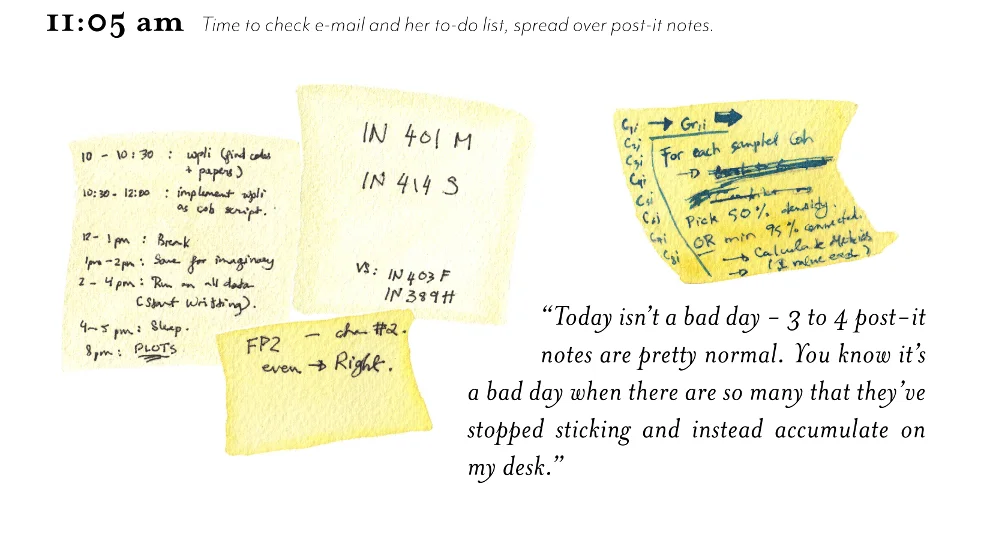 11:05 am Time to check e-mail and her to-do list, spread over post-it notes.
10 - 10:30 : wpli (find codes
+ papers)
10:30 - 12:00 : implement wpli
as coh script.
12 - 1pm : Break
1pm - 2pm : Same for imaginary
2 - 4pm : Run on all data
(Start writting).
4 - 5 pm : Sleep.
8pm : PLOTS
IN 401 M
IN 414 S
VS: IN 403 F
IN 389 H
FP2 - chan #2.
even → Right.
C1i → Gr1i
C2i
C3i
C4i
C5i
C6i
C7i
C8i
For each sampled Coh
→
Pick 50% density.
OR min 95% connected.
→ Calculate Metrics
→ (1 value each)
“Today isn’t a bad day – 3 to 4 post-it
notes are pretty normal. You know it’s
a bad day when there are so many that they’ve
stopped sticking and instead accumulate on
my desk.”